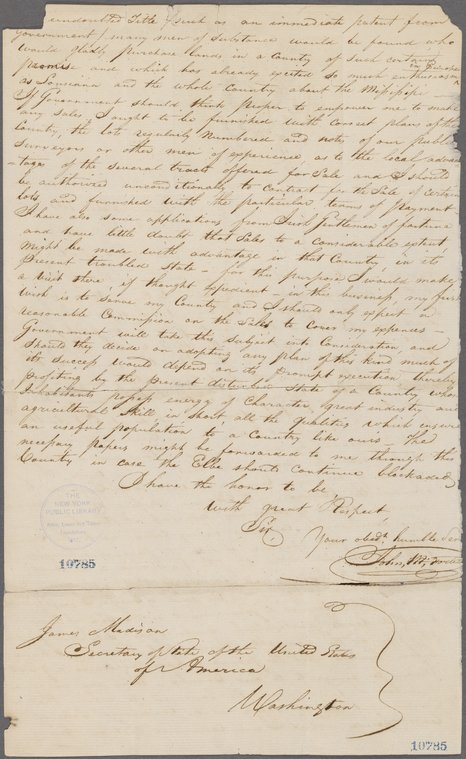 undoubted Title such as an immediate patent from
government, many men of substance would be found who
would gladly purchase lands in a Country of such certain
in Europe
promise and which has already excited so much enthusiasm
as Louisiana and the whole Country about the Missisippi —
If Government should think proper to empower me to make
any sales, I ought to be furnished with correct plans of the
Country, the lots regularly numbered and notes of our public
surveyors or other men of experience, as to the local advan
-tages of the several tracts offered for Sale and I should
be authorized unconditionally to Contract for the Sale of certain
lots and furnished with the particular terms of payment
I have also some applications from Irish Gentlemen of fortune
and have little doubt that Sales to a considerable extent
might be made with advantage in that Country in its
present troubled State — for this purpose I would make
a visit there, if thought expedient — in this business, my first
wish is to serve my Country and I should only expect a
reasonable Commission on the Sales to cover my expences —
Government will take this subject into Consideration and
should they decide on adopting any plan of the kind, much of
its success would depend on its prompt execution, thereby
profiting by the present disturbed State of a Country whose
inhabitants possess energy of Character, great industry and
agricultural skill in short all the qualities which ensure
an useful population to a Country like ours — the
necessary papers might be forwarded to me through the
Country in case the Elbe should continue blockaded
I have the honor to be
with great Respect
Sir,
Your obedt. humble Serv
John M.
THE
NEW YORK
PUBLIC LIBRARY
10785
James Madison
Secretary of State of the United States
of America
Washington
10785